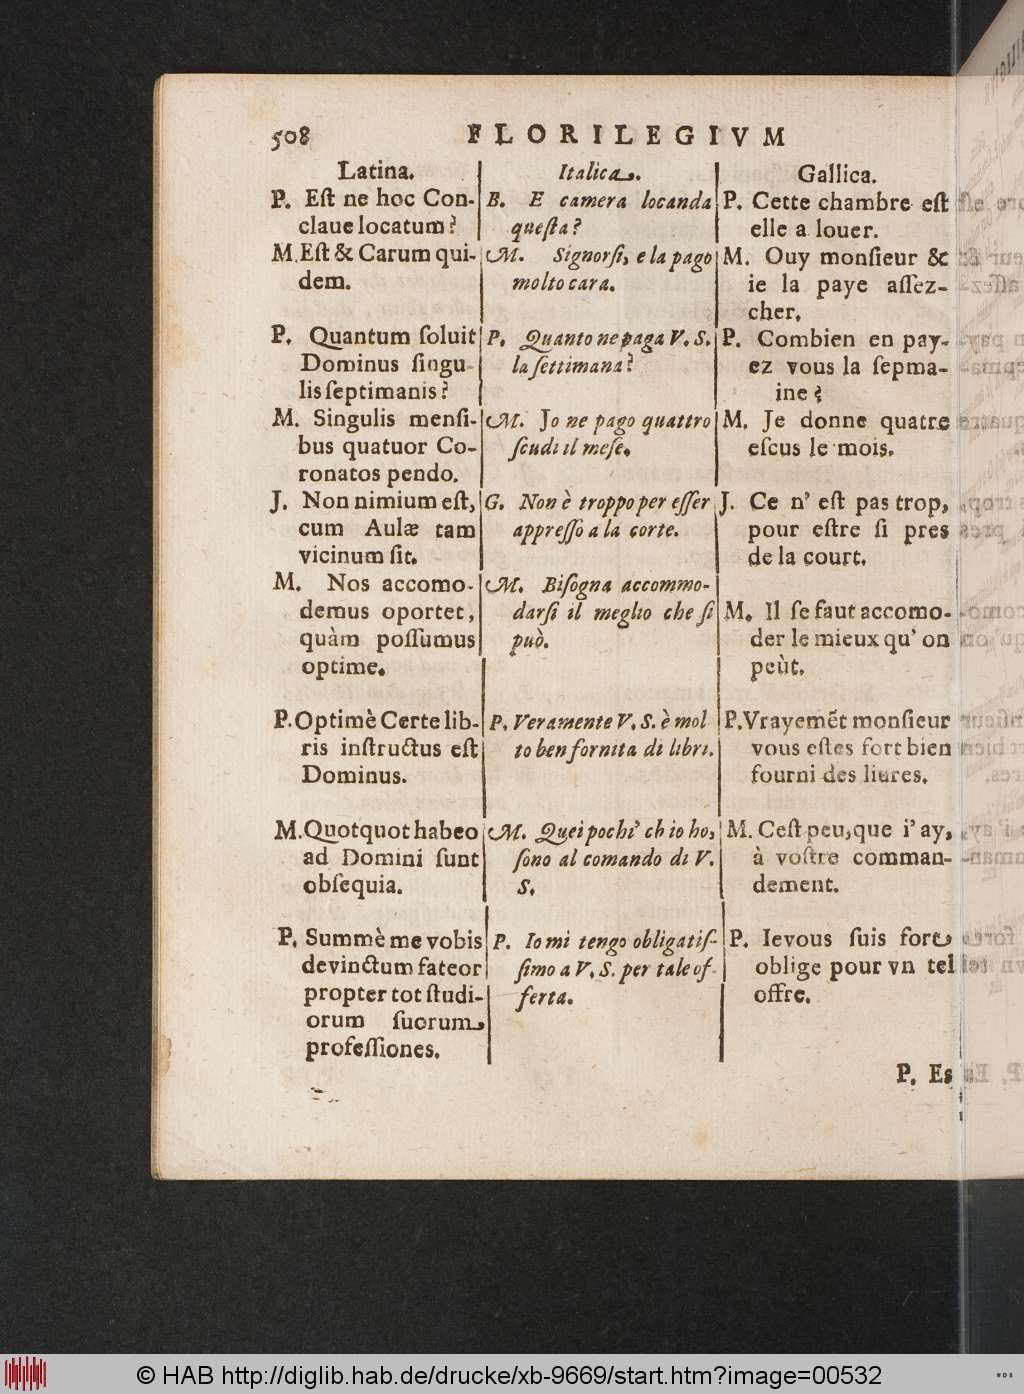 508 FLORILEGIVM
Latina.
P. Eſt ne hoc Con-
claue locatum?
M. Eſt & Carum qui-
dem.
P. Quantum ſoluit
Dominus ſingu-
lis ſeptimanis?
M. Singulis menſi-
bus quatuor Co-
ronatos pendo.
J. Non nimium eſt,
cum Aulæ tam
vicinum ſit.
M. Nos accomo-
demus oportet,
quàm poſſumus
optime.
P. Optimè Certe lib-
ris inſtructus eſt
Dominus.
M. Quotquot habeo
ad Domini ſunt
obſequia.
P. Summè me vobis
devinctum fateor
propter tot ſtudi-
orum ſuorum
profeſſiones.
Italica.
B. E camera locanda
queſta?
M. Signorſi, e la pago
molto cara.
P. Quanto ne paga V. S.
la ſettimana?
M. Jo ne pago quattro
ſcudi il meſe.
G. Non è troppo per eſſer
appreſſo a la corte.
M. Biſogna accommo-
darſi il meglio che ſi
può.
P. Veramente V. S. è mol
to ben fornita di libri.
M. Quei pochi' ch io ho,
ſono al comando di V.
S.
P. Io mi tengo obligatiſ-
ſimo a V. S. per tale of-
ferta.
Gallica.
P. Cette chambre eſt
elle a louer.
M. Ouy monſieur &
ie la paye aſſez-
cher.
P. Combien en pay-
ez vous la ſepma-
ine?
M. Je donne quatre
eſcus le mois.
J. Ce n' eſt pas trop,
pour eſtre ſi pres
de la court.
M. Il ſe faut accomo-
der le mieux qu' on
peùt.
P. Vrayemẽt monſieur
vous eſtes fort bien
fourni des liures.
M. Ceſt peu, que i' ay,
à voſtre comman-
dement.
P. Ievous ſuis fort
oblige pour vn tel
offre.
P. Es
© HAB http://diglib.hab.de/drucke/xb-9669/start.htm?image=00532